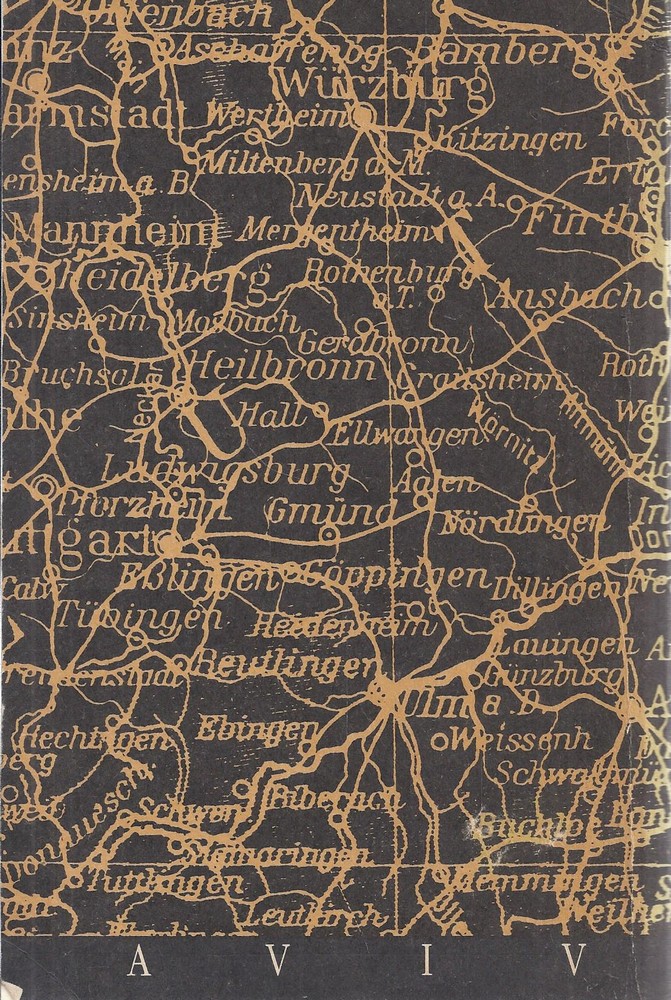 Offenbach
Aschaffenbg. Bamberg
Würzburg
armstadt Wertheim
Kitzingen
Miltenberg a. M.
ensheim a. B.
Neustadt a. A.
Fürth
Mannheim Mergentheim
Heidelberg Rothenburg
o. T.
Ansbach
Sinsheim Mosbach
Gerabronn
Bruchsal Heilbronn Roth
Crailsheim
Hall
Ellwangen Wörnitz Altmühl
Ludwigsburg
Aalen
Pforzheim Gmünd
Nördlingen
ttgart
Eßlingen Göppingen
Dillingen
Calw
Tübingen Heidenheim
Lauingen
Reutlingen Günzburg
reudenstadt
Ulm a. D.
Ebingen
Hechingen Weissenh
berg
Schwabmü
Biberach
Donaueschi
Buchloe
Sigmaringen
Tuttlingen Memmingen
Leutkirch Weilhe
A V I V